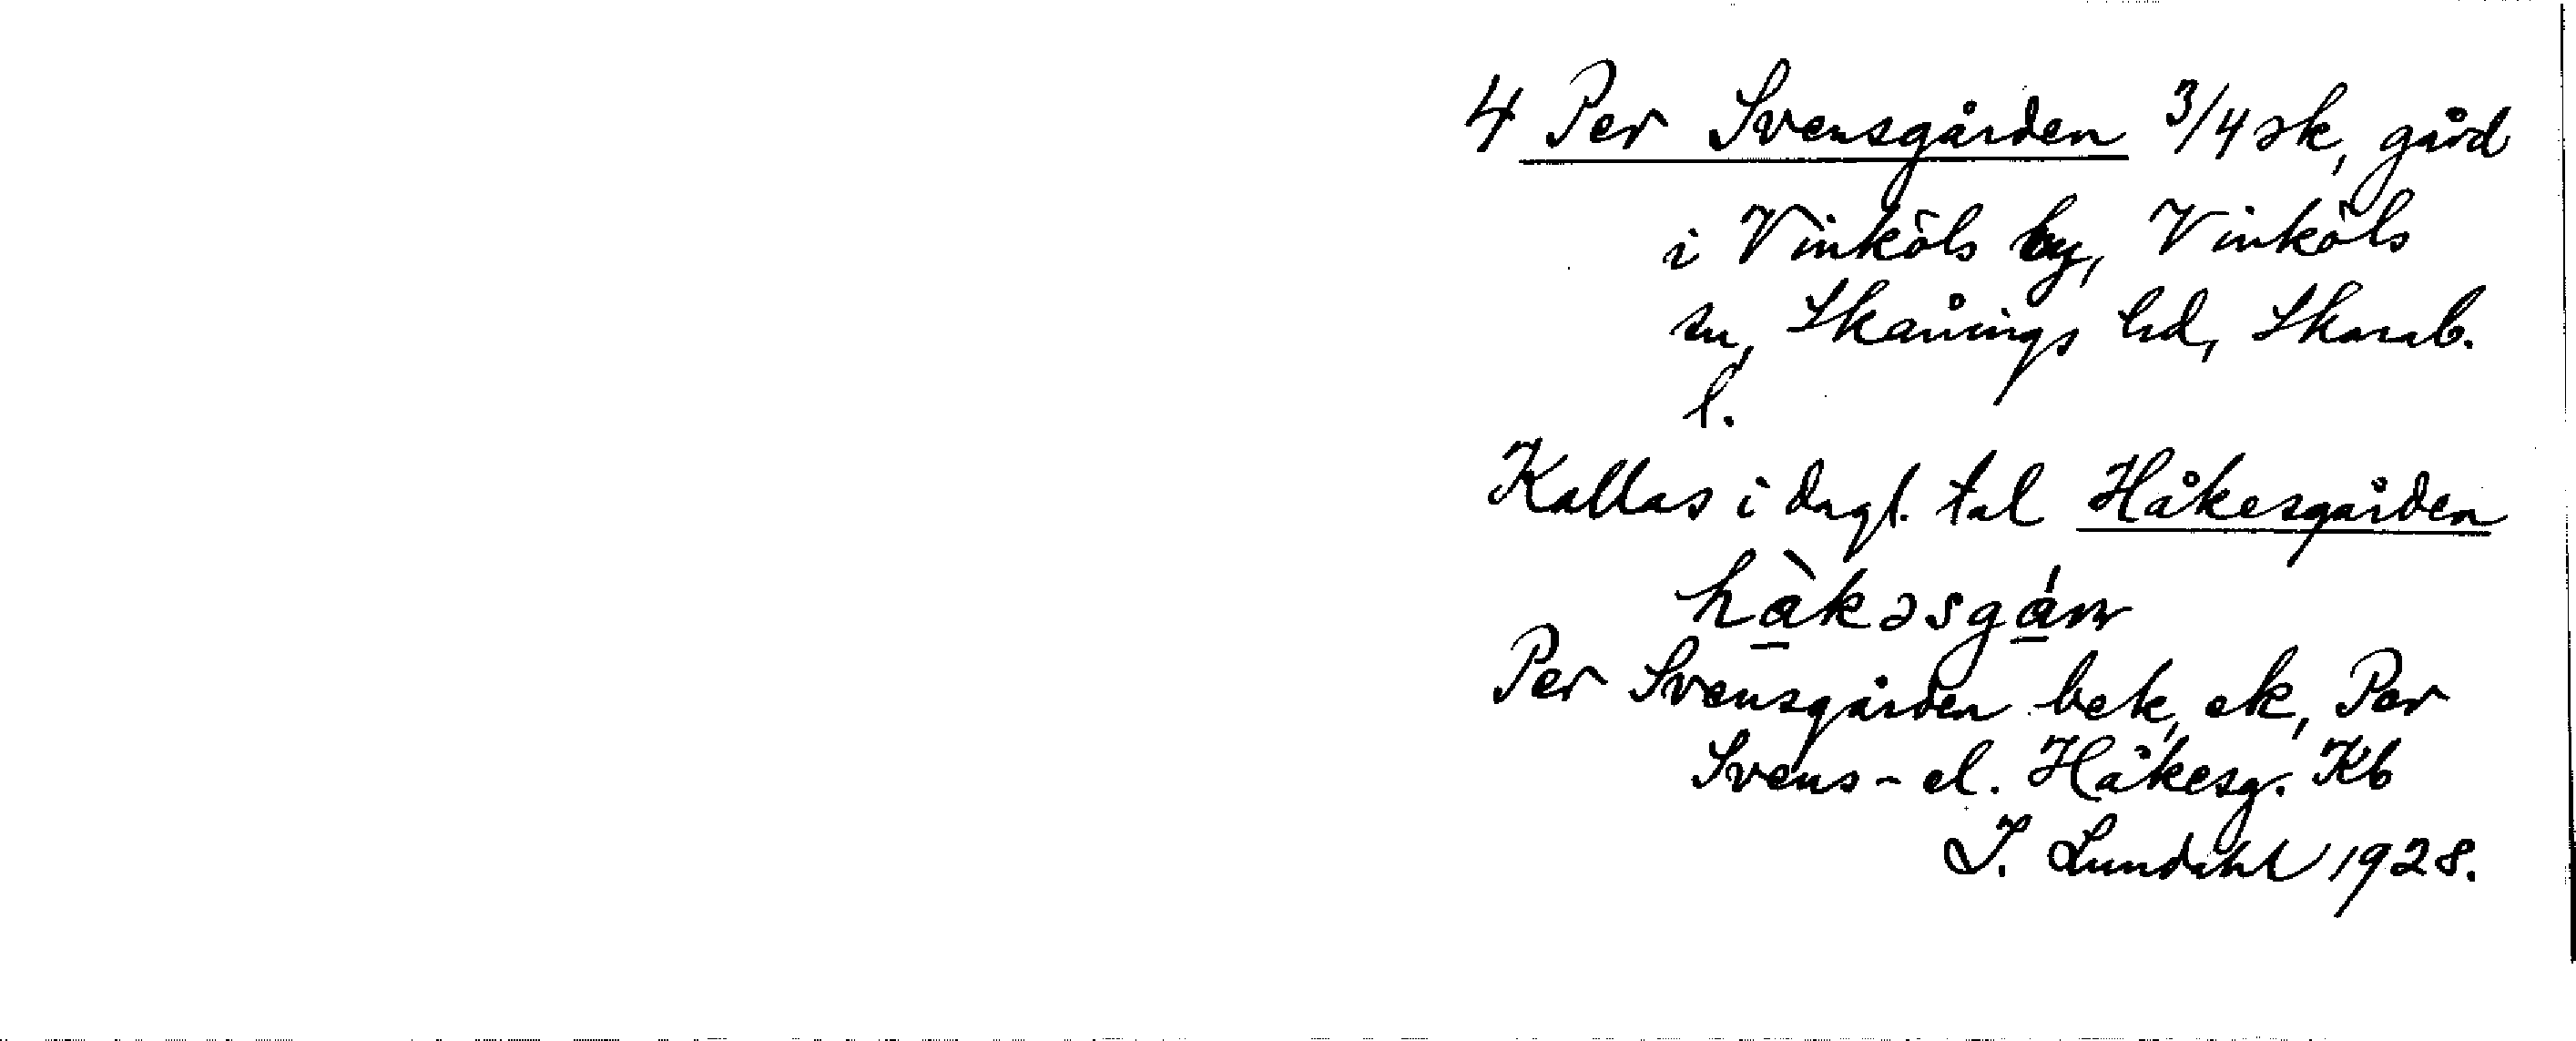 4 Per Svensgården 3/4 sk, gård
i Vinköls by, Vinköls
sn, Skånings hd, Skarab.
l.
Kallas i dagl. tal Håkesgården
hàkəsgán
Per Svensgården bek, ek, Per
Svens- el. Håkesg. Kb
I. Lundahl 1928.